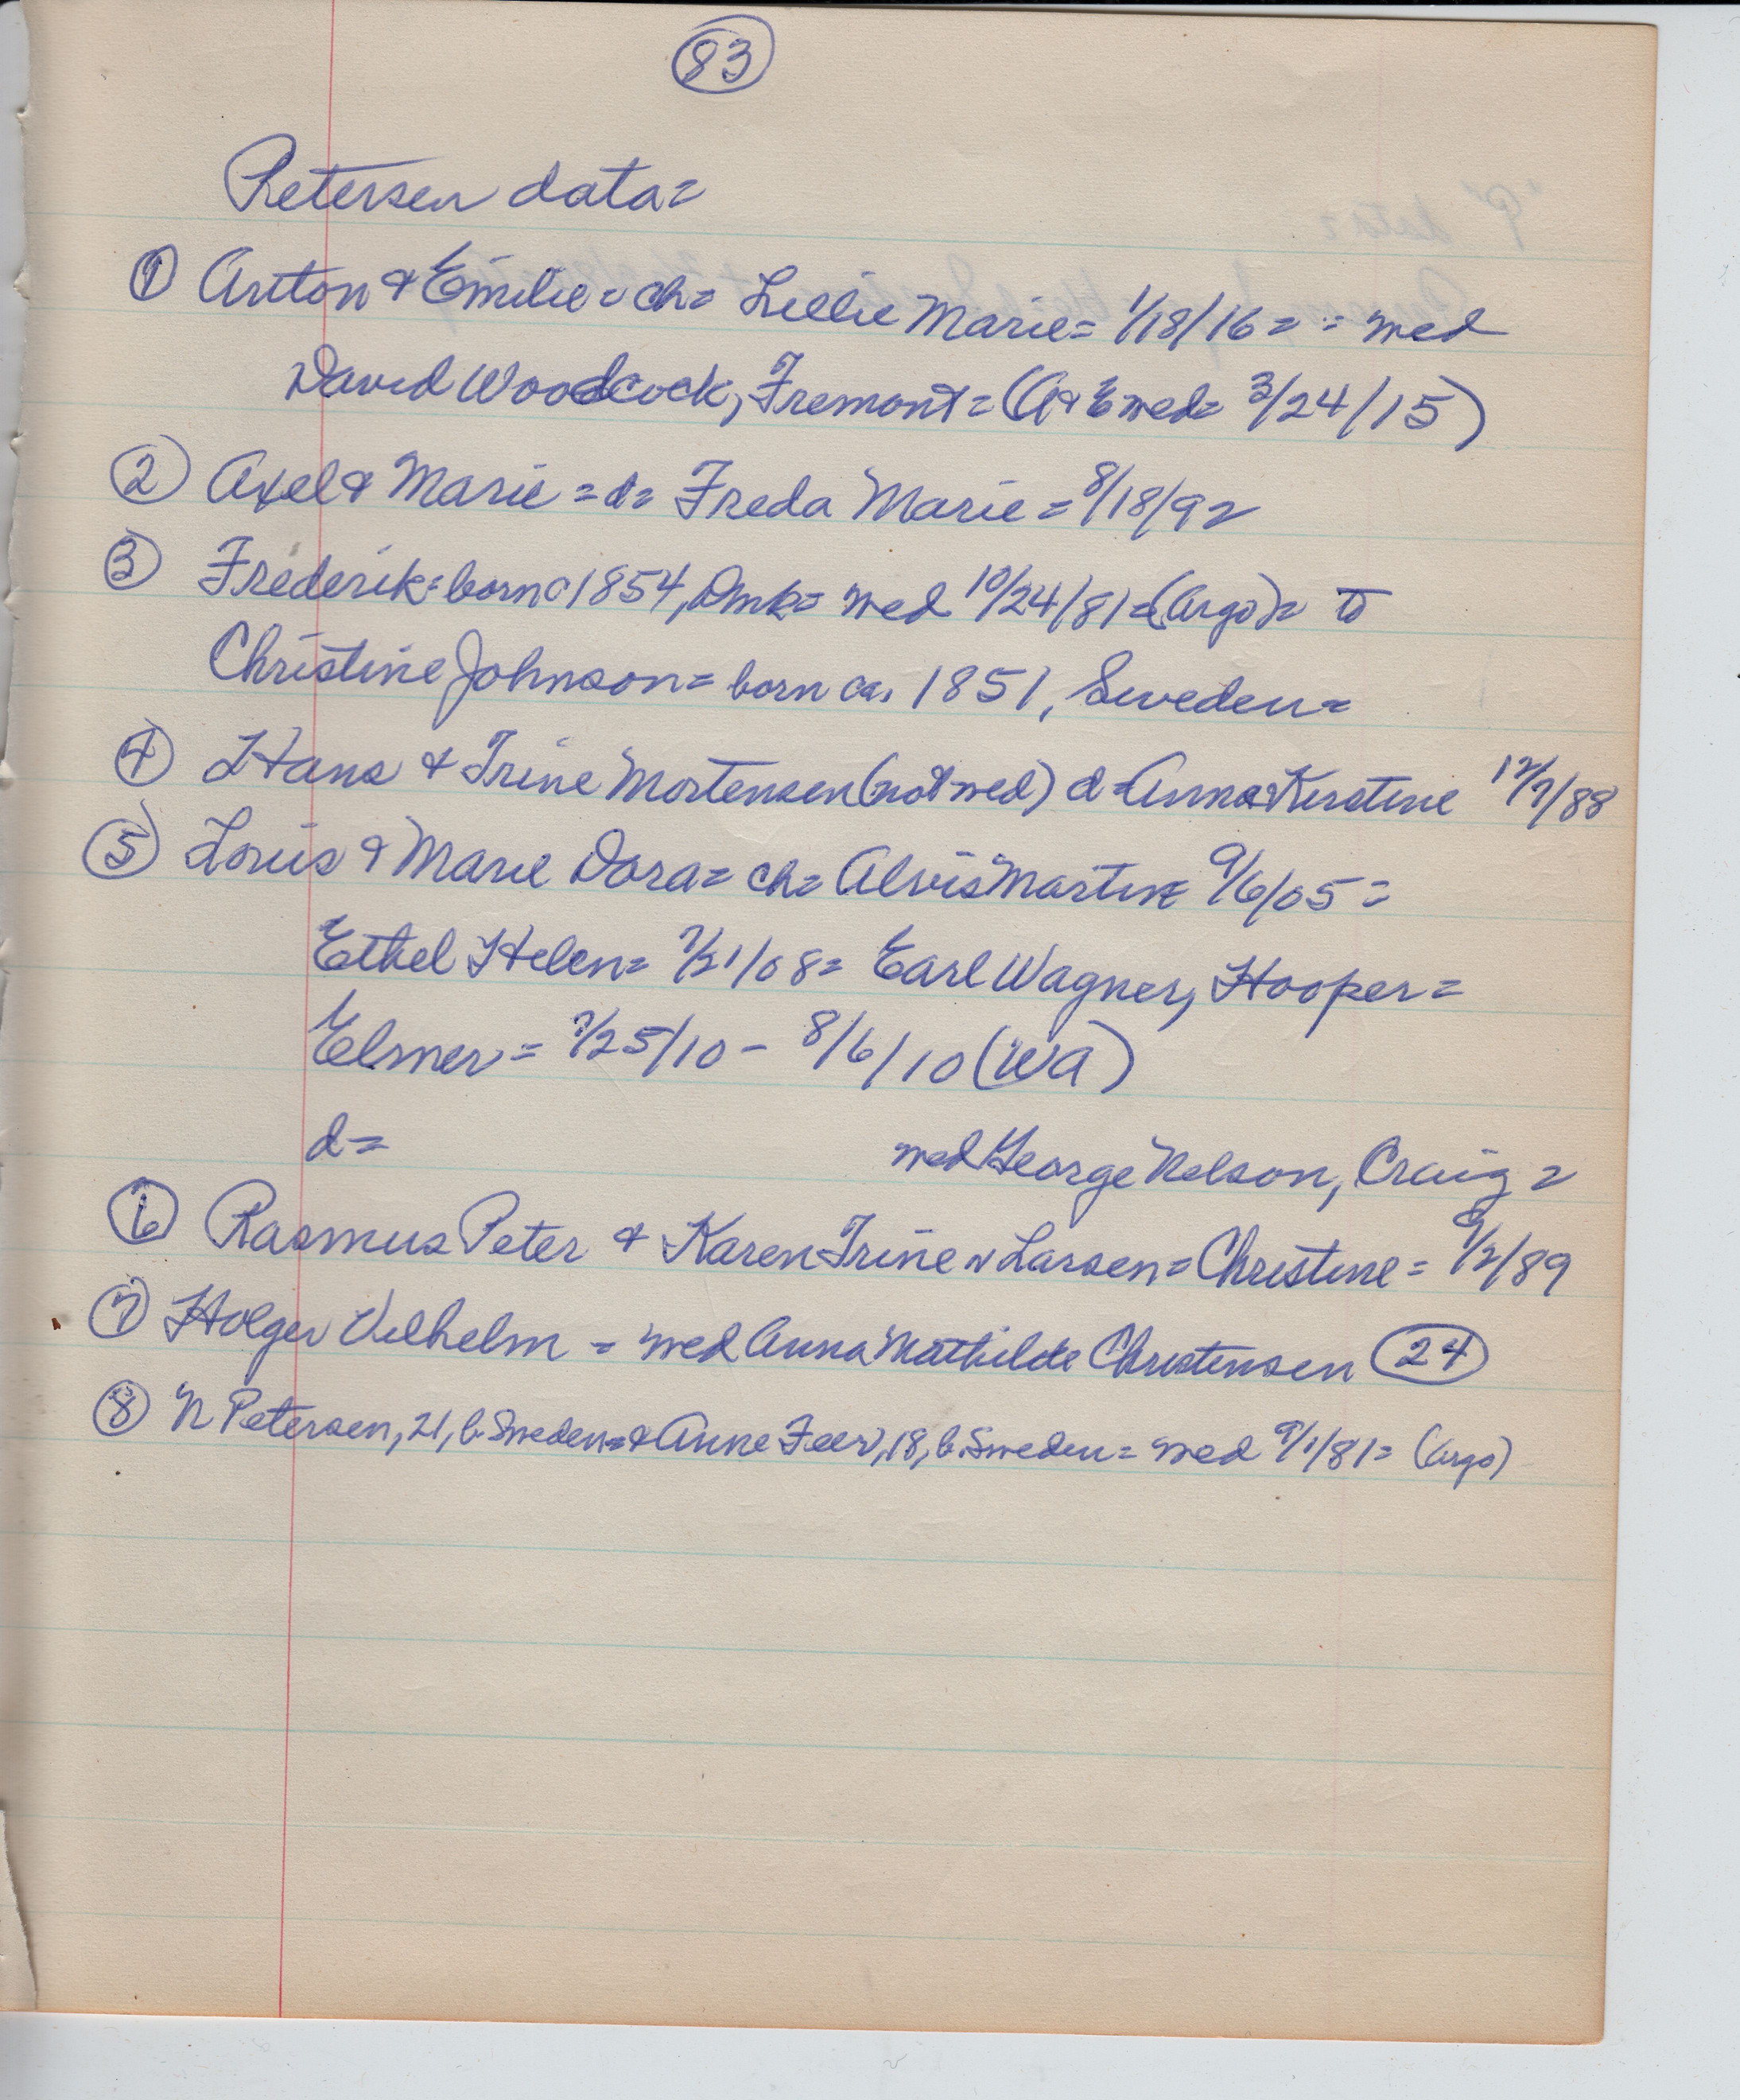 83
Petersen data=
① Anton & Emilie = ch= Lillie Marie= 1/18/16 = = med
David Woodcock, Fremont = (A & E med= 3/24/15)
② Axel & Marie = d= Freda Marie = 8/18/92
③ Frederik = born c 1854, Dmk= med 10/24/81 = (Argo) = to
Christine Johnson = born ca. 1851, Sweden =
④ Hans & Trine Mortensen (not med) d = Anna Kirstine 12/7/88
⑤ Louis & Marie Dora = ch= Alvis Martin 9/6/05 =
Ethel Helen = 7/21/08 = Earl Wagner, Hooper =
Elmer = 7/25/10 - 8/6/10 (WA)
d= med George Nelson, Craig =
⑥ Rasmus Peter & Karen Trine n Larsen = Christine = 9/2/89
⑦ Holger Vilhelm = med Anna Mathilde Christensen 24
⑧ N Petersen, 21, b. Sweden = & Anne Feer, 18, b. Sweden = med 9/1/81 = (Argo)